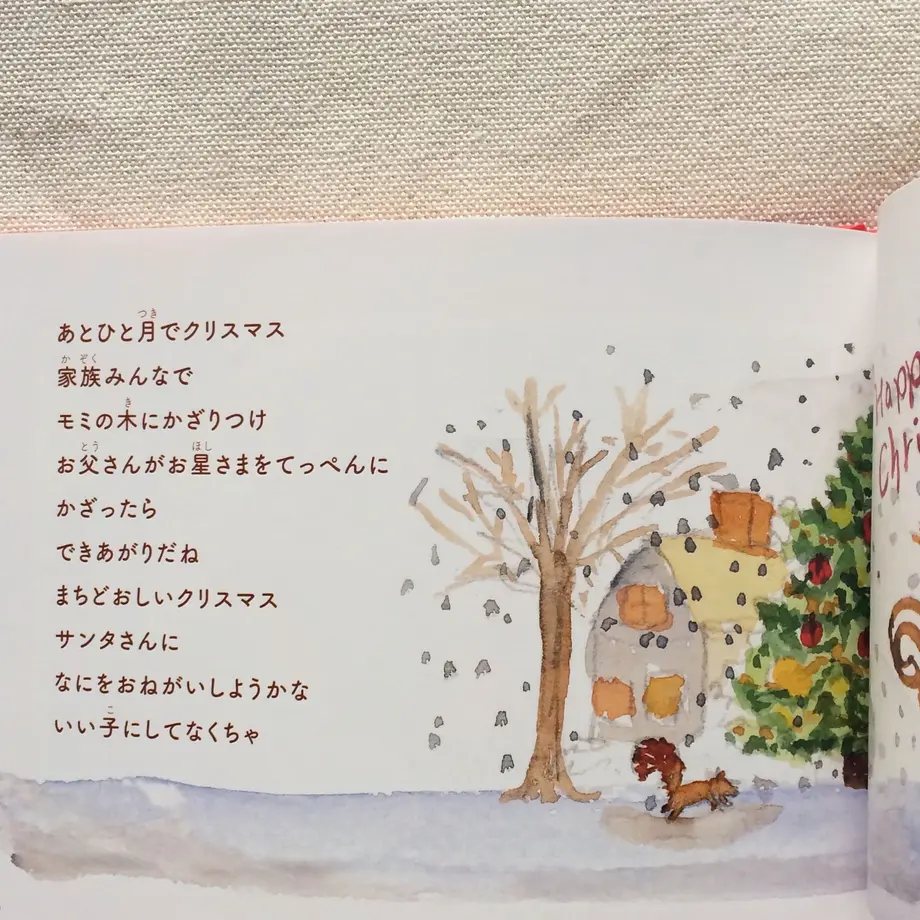 あとひと月でクリスマス
家族みんなで
モミの木にかざりつけ
お父さんがお星さまをてっぺんに
かざったら
できあがりだね
まちどおしいクリスマス
サンタさんに
なにをおねがいしようかな
いい子にしてなくちゃ